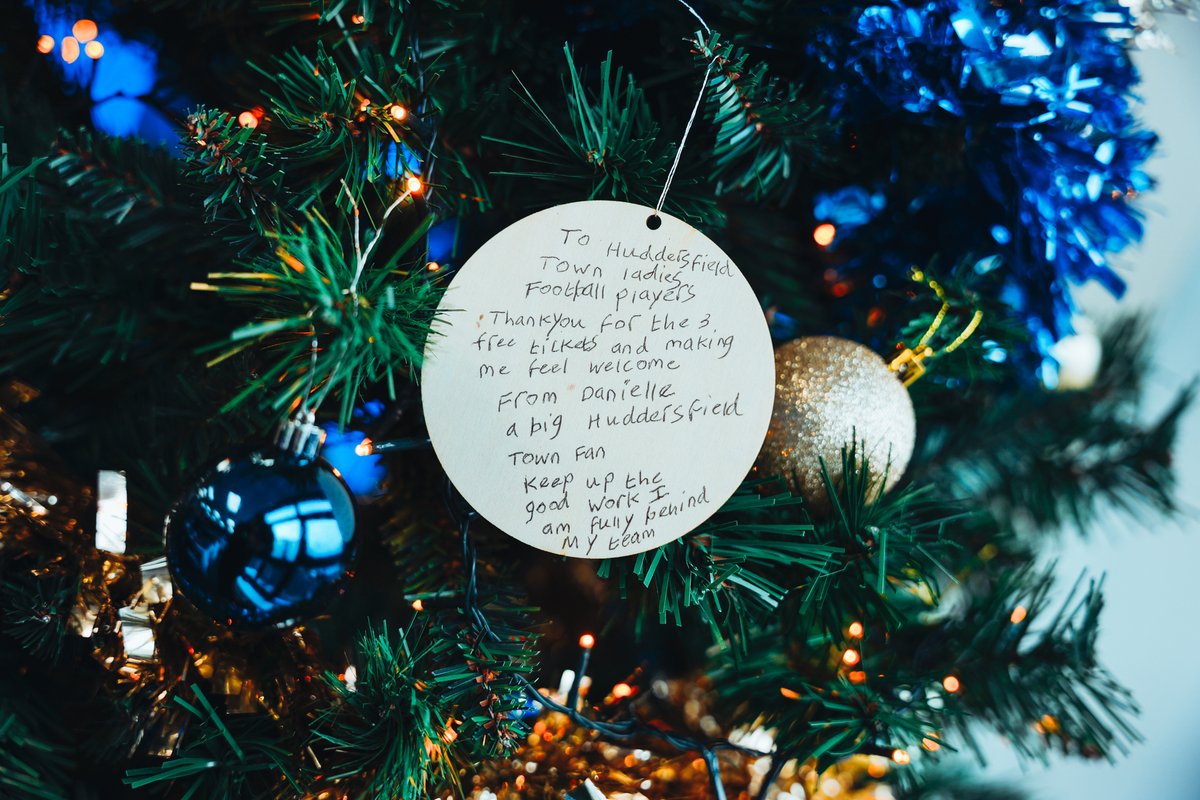 To Huddersfield
Town ladies
Football players
Thankyou for the 3
free tickets and making
me feel welcome
From Danielle
a big Huddersfield
Town Fan
Keep up the
good work I
am fully behind
My team